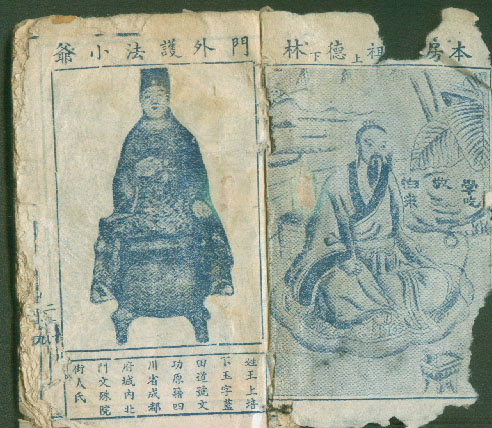 本房祖上德下林
敬
門外護法小爺
姓王上培
下玉字藍
田道號文
功原籍四
川省成都
府城内北
門文殊院
街人氏